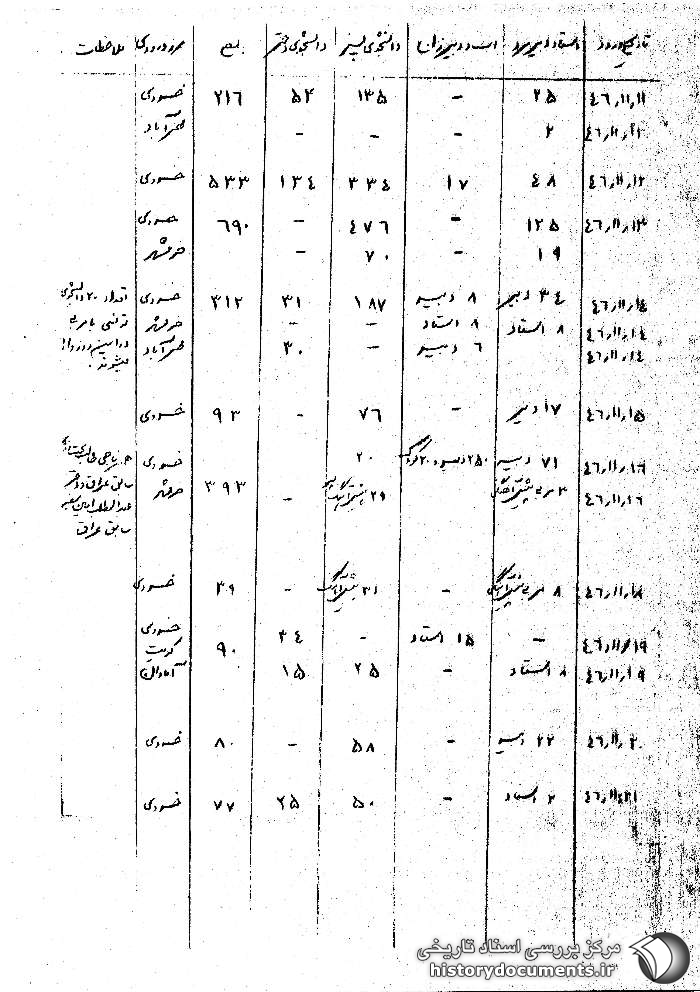 تاریخ ورود استاد و دبیر مرد استاد و دبیر زن دانشجوی پسر دانشجوی دختر جمع مرز ورودی ملاحظات
۴۶/۱۱/۱۱ ۲۵ - ۱۳۵ ۵۴ ۲۱۶ خسروی
۴۶/۱۱/ ۲ - - - مهرآباد
۴۶/۱۱/۱۲ ۴۸ ۱۷ ۳۳۴ ۱۳۴ ۵۳۳ خسروی
۴۶/۱۱/۱۳ ۱۲۵ - ۴۷۶ - ۶۹۰ خسروی
۱۹ - ۷۰ - خرمشهر
۴۶/۱۱/۱۴ ۳۴ دبیر ۸ دبیر ۱۸۷ ۳۱ ۳۱۲ خسروی تعداد ۲۰ دانشجوی
۴۶/۱۱/۱۴ ۸ استاد ۸ استاد - - خرمشهر
۴۶/۱۱/۱۴ ۶ دبیر - ۳۰ مهرآباد
میشوند
۴۶/۱۱/۱۵ ۱۷ دبیر - ۷۶ - ۹۳ خسروی
۴۶/۱۱/۱۶ ۷۱ دبیر ۲۵۰ ۲۰ کودک ۲۰ خسروی
۴۶/۱۱/۱۶ ۳ مربی پیش‌آهنگی ۲۹ - ۳۹۳ خرمشهر سابق عراق و دختر
سابق عراق
۴۶/۱۱/۱۸ ۸ مربی پیش‌آهنگی - ۳۱ پیش‌آهنگ - ۳۹ خسروی
۴۶/۱۱/۱۹ - ۱۵ استاد - ۳۴ ۹۰ خسروی
کویت
۴۶/۱۱/۱۹ ۸ استاد - ۲۵ ۱۵ آبادان
۴۶/۱۱/۲۰ ۲۲ دبیر - ۵۸ - ۸۰ خسروی
۴۶/۱۱/۲۱ ۲ استاد - ۵۰ ۲۵ ۷۷ خسروی
مرکز بررسی اسناد تاریخی
historydocuments.ir